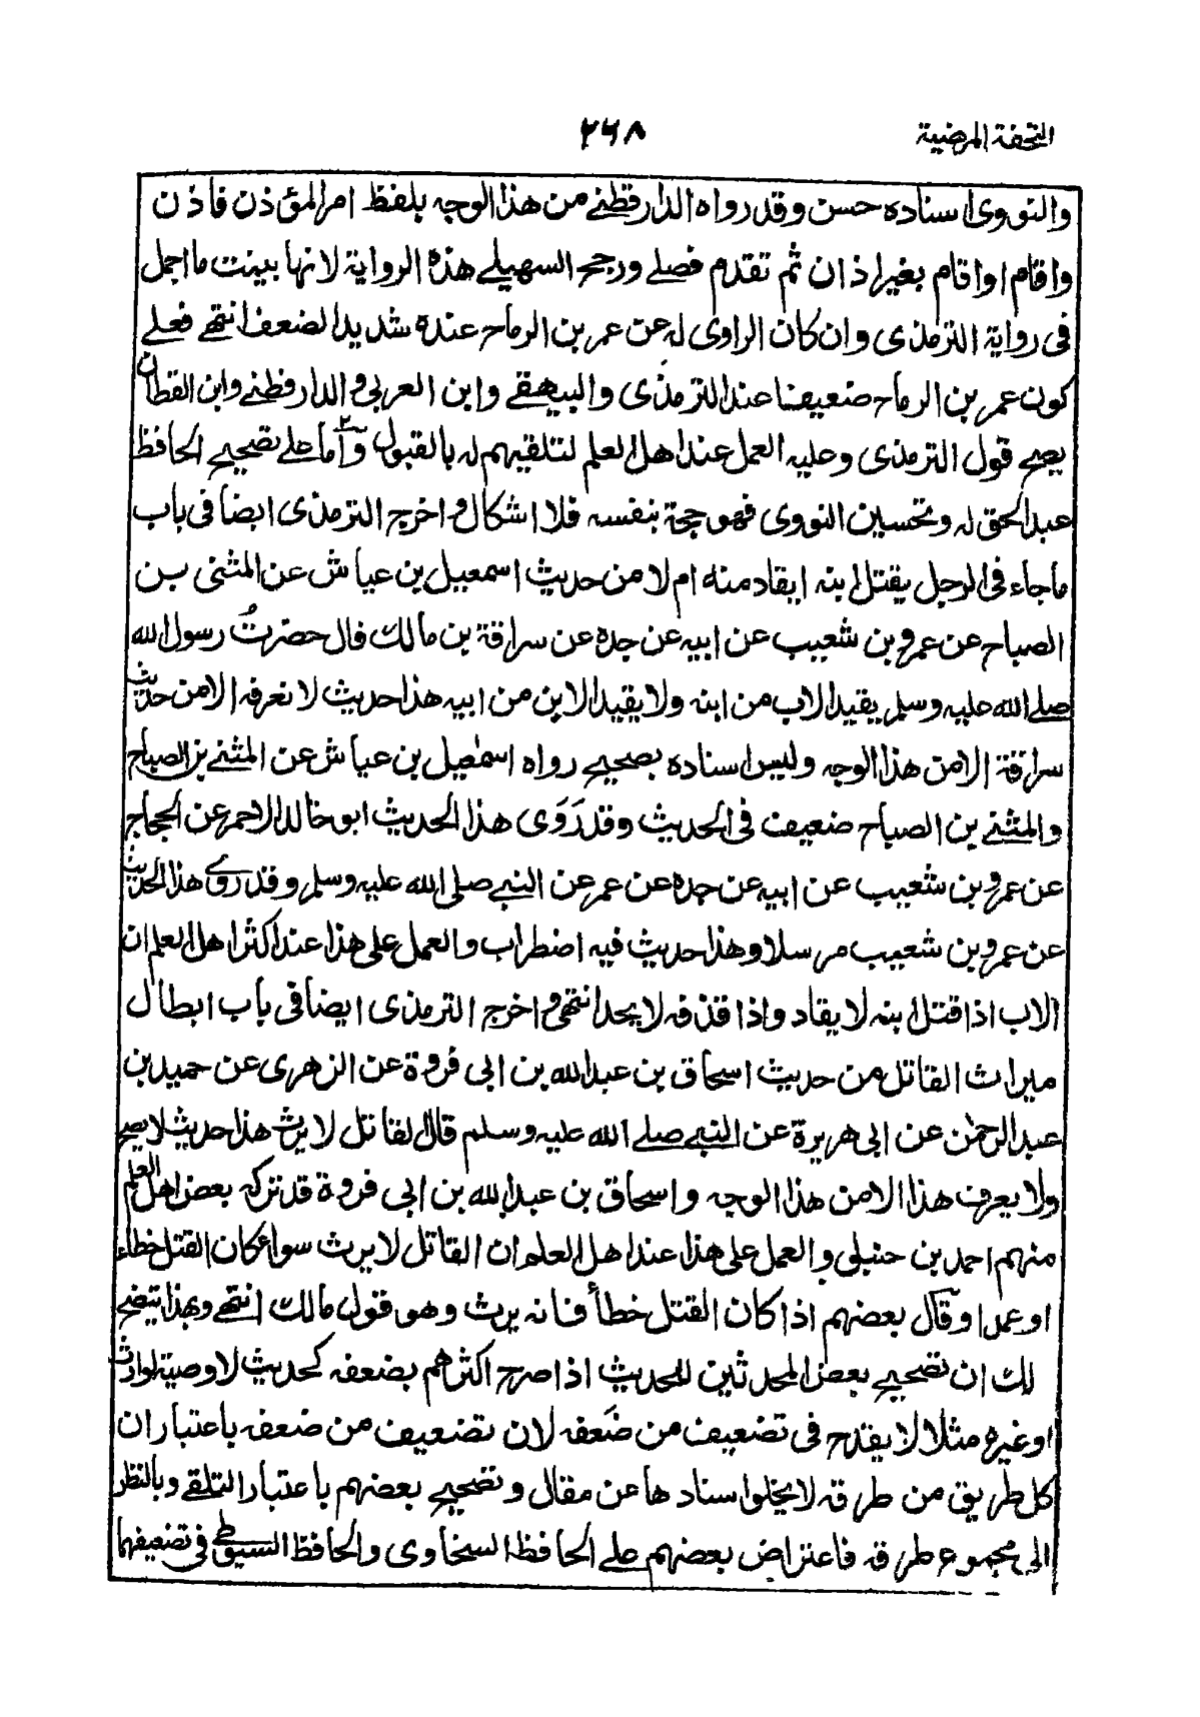 التحفة المرضية
٢٦٨
والنووى اسناده حسن وقد رواه الدارقطنے من هذا الوجه بلفظ امر المؤذن فاذن
واقام اواقام بغير اذان ثم تقدم فصلے ورجح السهيلے هذه الرواية لانها بينت ما اجمل
فى رواية الترمذى وان كان الراوى له عن عمر بن الرماح عنده شديد الضعف انتهے فعلے
كون عمر بن الرماح ضعيفا عند الترمذى والبيهقے وابن العربى والدارقطنے وابن القطان
يصح قول الترمذى وعليه العمل عند اهل العلم لتلقيهم له بالقبول وآما علے تصحيح الحافظ
عبد الحق له وتحسين النووى فهو حجة بنفسه فلا اشكال واخرج الترمذى ايضا فى باب
ما جاء فى الرجل يقتل ابنه ايقاد منه ام لا من حديث اسمعيل بن عياش عن المثنى بن
الصباح عن عمرو بن شعيب عن ابيه عن جده عن سراقة بن مالك قال حضرتُ رسول الله
صلے الله عليه وسلم يقيد الاب من ابنه ولا يقيد الابن من ابيه هذا حديث لا نعرفه الا من حديث
سراقة الا من هذا الوجه وليس اسناده بصحيح رواه اسمٰعيل بن عياش عن المثنے بن الصباح
والمثنے بن الصباح ضعيف فى الحديث وقد رَوَى هذا الحديث ابو خالد الاحمر عن الحجاج
عن عمرو بن شعيب عن ابيه عن جده عن عمر عن النبے صلى الله عليه وسلم وقد روے هذا الحديث
عن عمرو بن شعيب مرسلا وهذا حديث فيه اضطراب والعمل على هذا عند اكثر اهل العلم ان
الاب اذا قتل ابنه لا يقاد واذا قذفه لا يحد انتهى واخرج الترمذى ايضا فى باب ابطال
ميراث القاتل من حديث اسحاق بن عبد الله بن ابى فروة عن الزهرى عن حميد بن
عبد الرحمٰن عن ابى هريرة عن النبے صلے الله عليه وسلم قال القاتل لا يرث هذا حديث لا يصح
ولا يعرف هذا الا من هذا الوجه واسحاق بن عبد الله بن ابى فروة قد تركه بعض اهل العلم
منهم احمد بن حنبل والعمل على هذا عند اهل العلم ان القاتل لا يرث سواء كان القتل خطاء
او عمدا وقآل بعضهم اذا كان القتل خطأ فانه يرث وهو قول مالك انتهے وبهذا يتضح
لك ان تصحيح بعض المحدثين للحديث اذا صرح اكثرهم بضعفه كحديث لا وصية لوارث
او غيره مثلا لا يقدح فى تضعيف من ضَعفه لان تضعيف من ضعفه باعتبار ان
كل طريق من طرقه لا يخلوا سنادها عن مقال وتصحيح بعضهم باعتبار التلقے وبالنظر
الى مجموع طرقه فاعتراض بعضهم علے الحافظ السخاوى والحافظ السيوطے فى تضعيفهما